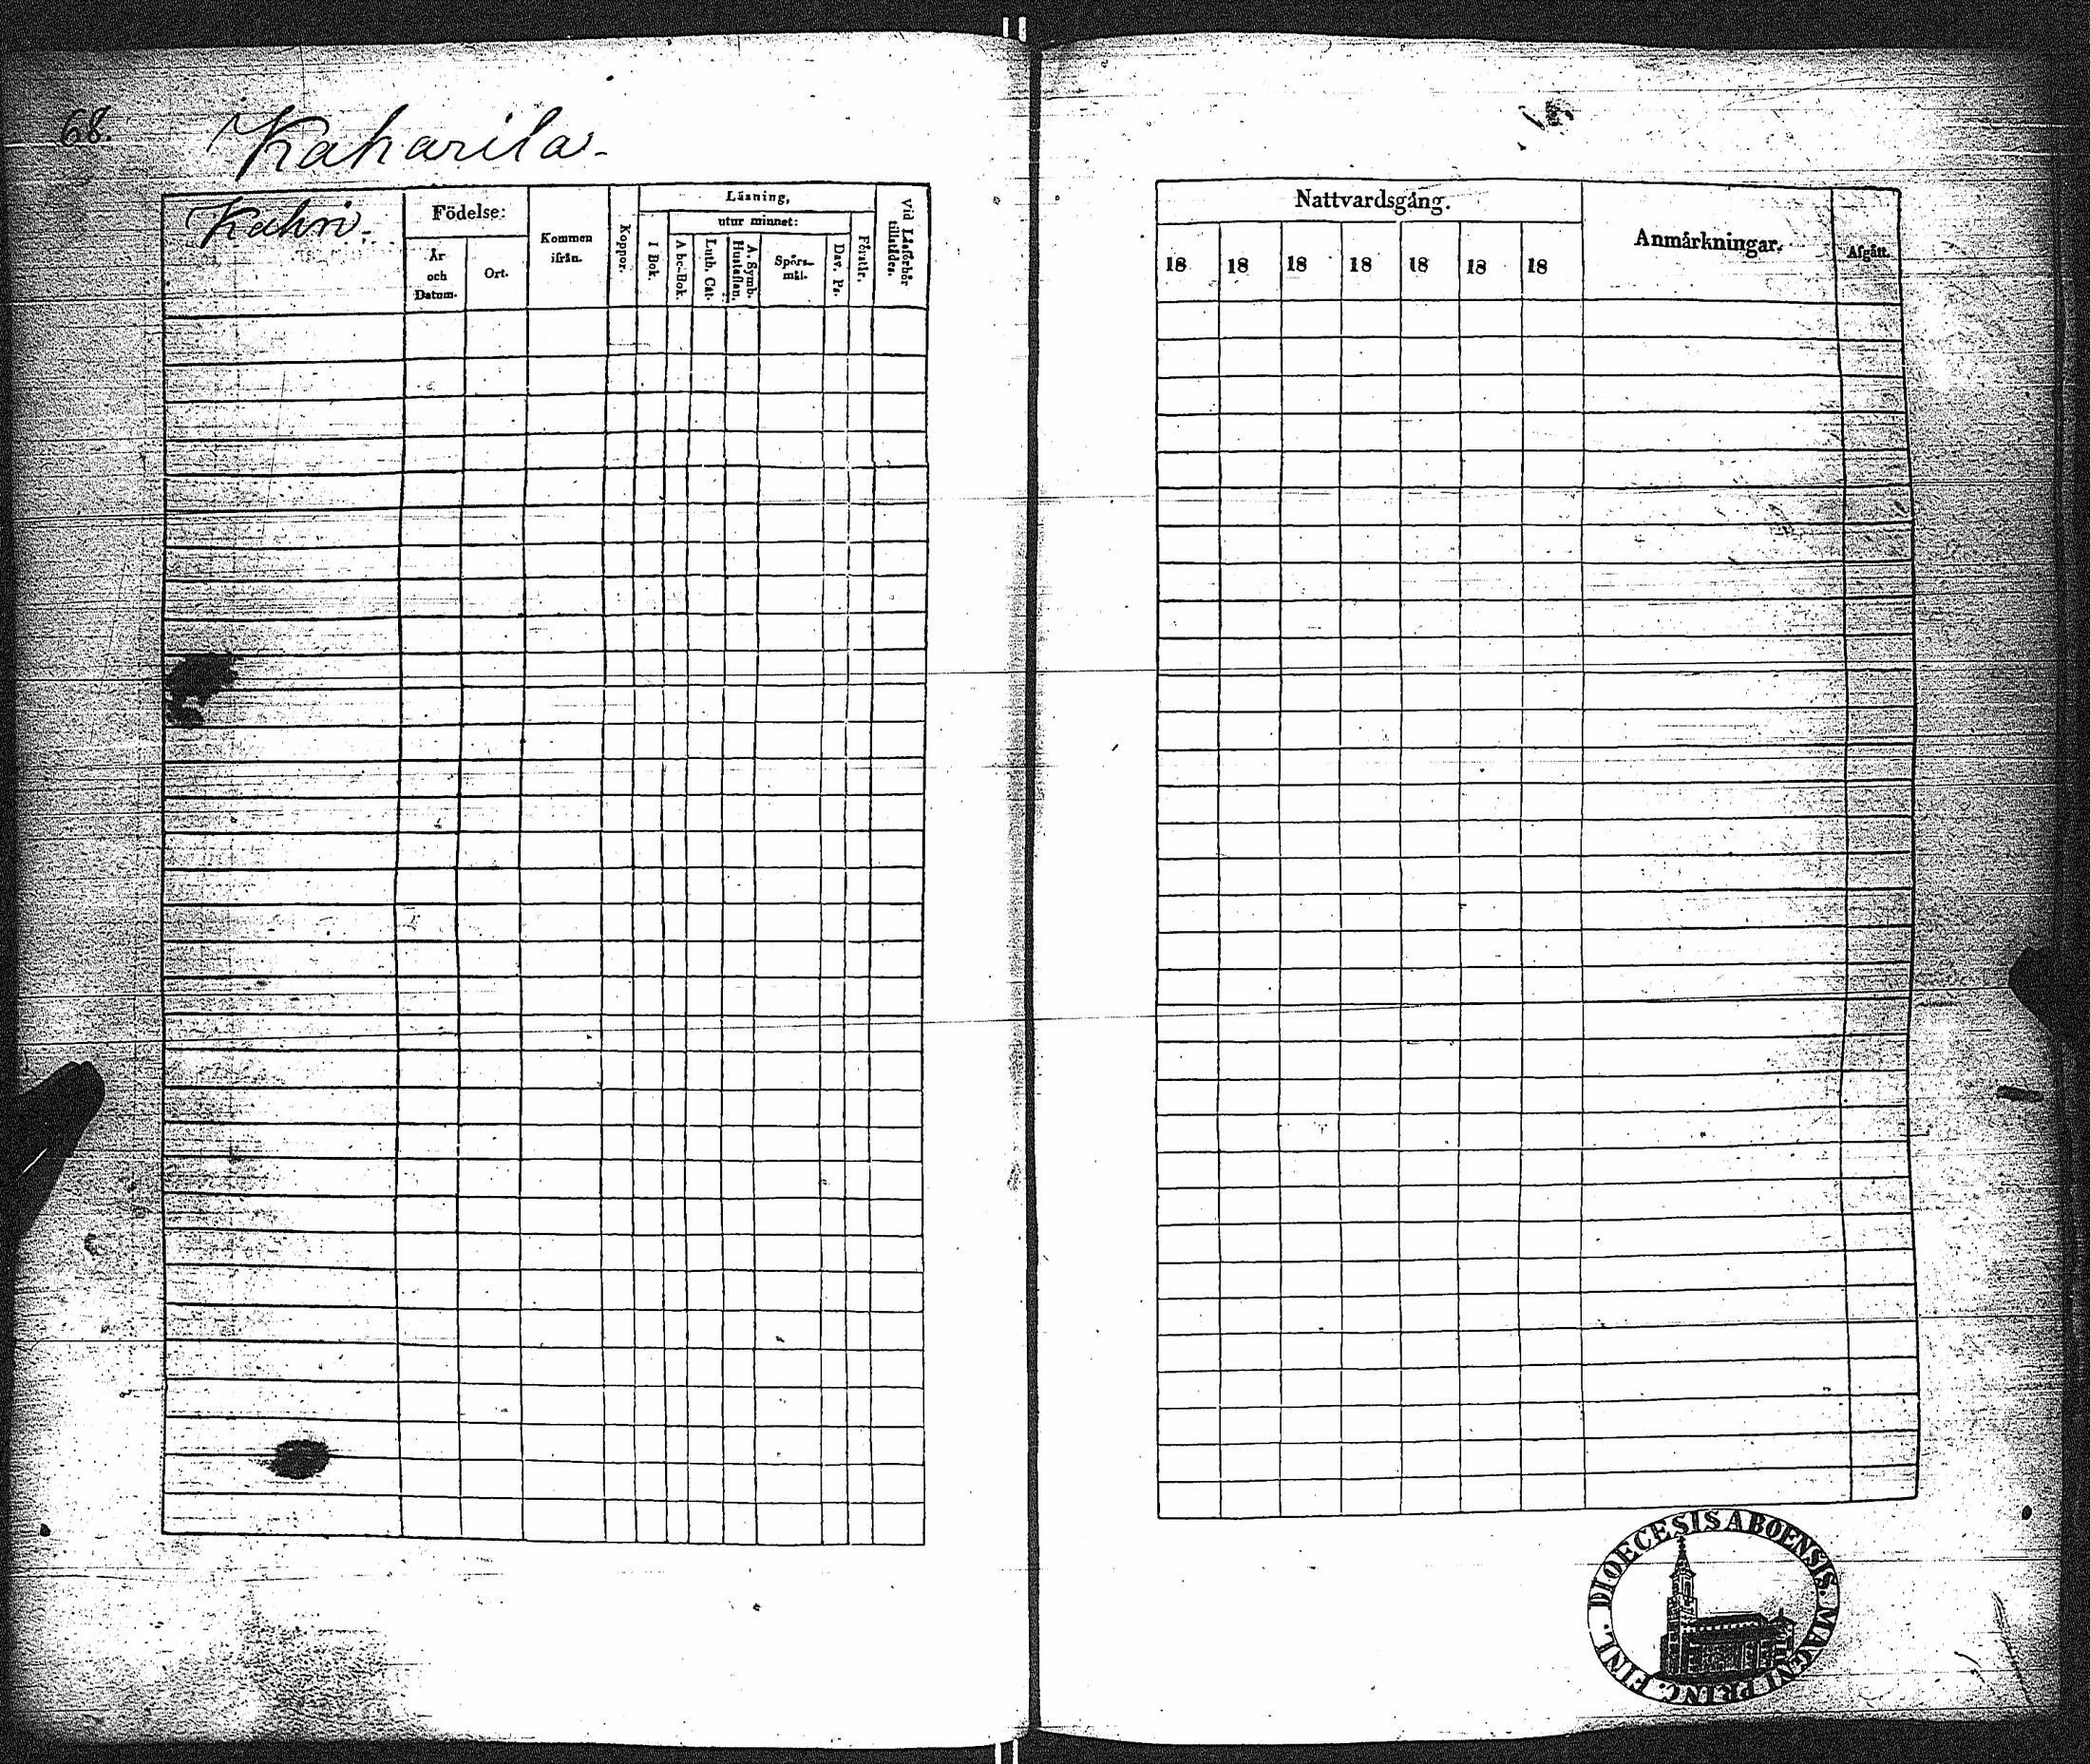 68.
Kaharila.
Kahri.
Födelse:
År
och
Datum.
Ort.
Kommen
ifrån.
Koppor.
Läsning,
I Bok.
utur minnet:
Abc-Bok.
Luth. Cat.
A. Symb.
Hustaflan.
Spörs-
mål.
Dav. Ps.
Förstår.
Vid Läsförhör
tillstädes.
Nattvardsgång.
18 18 18 18 18 18 18
Anmärkningar.
Afgått.
DIOECESIS ABOENSIS. MAGNI PRINC. FINL.